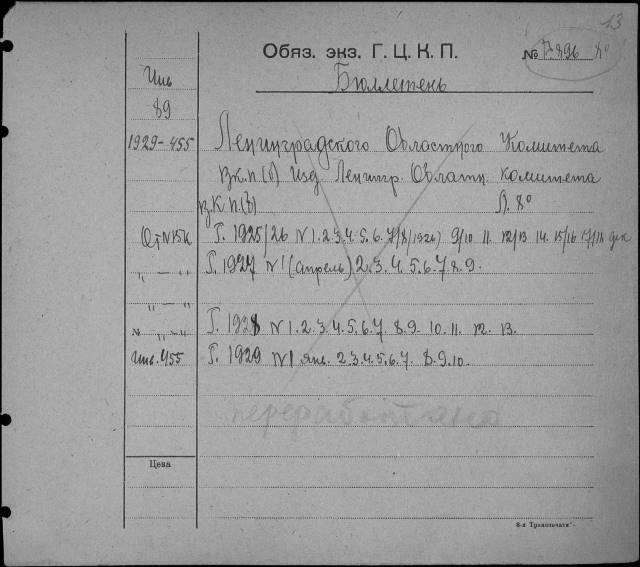 13
Обяз. экз. Г. Ц. К. П. № В.896 80
Бюллетень
Инв
89
1929-455 Ленинградского Областного Комитета
Вк.п(б) Изд. Ленингр. Областн. комитета
в.К.п.(б) Л. 8°
Г. 1925/26 N 1.2.3.4.5.6.7/8/1926) 9/10 11. 12/13 14. 15/16 17/18 дек
„ — „ Г. 1927 N 1 (апрель) 2.3.4.5.6.7.8.9.
„ — „
„ — „ Г. 1928 N 1.2.3.4.5.6.7. 8.9. 10.11. 12. 13.
Инв. 455 Г. 1929 N 1 янв. 2.3.4.5.6.7. 8.9.10.
переработано
Цена
8-я Транспечати".